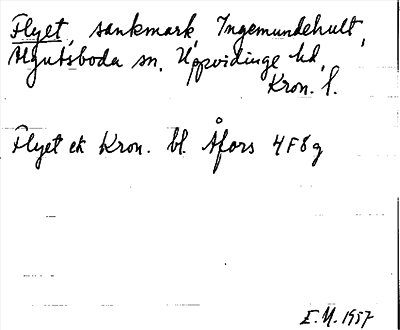 Flyet, sankmark, Ingemundehult,
Algutsboda sn, Uppvidinge hd,
Kron. l.
Flyet ek Kron. bl. Åfors 4F8g
E.M. 1957